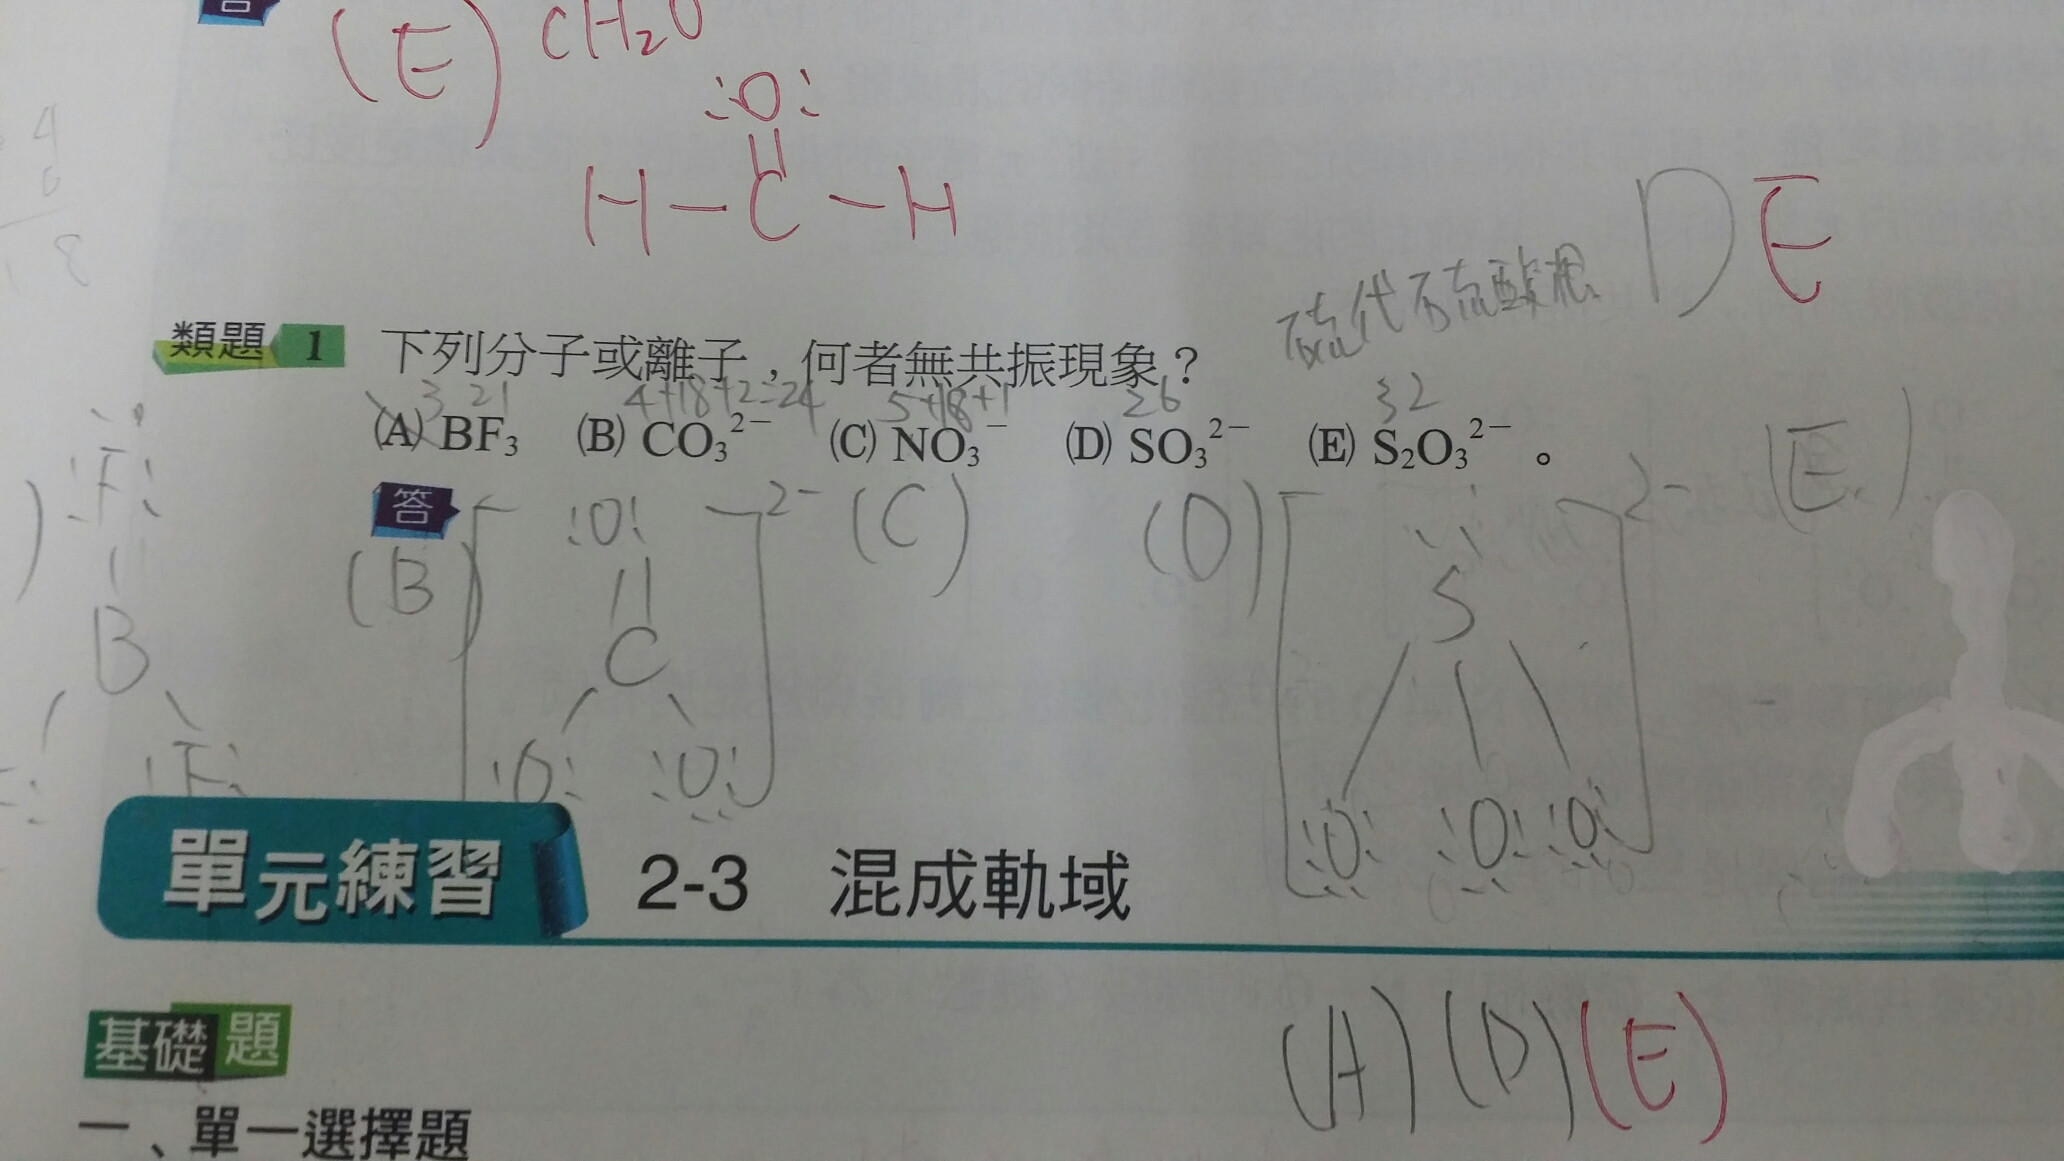 答
(E) CH₂O
:O:
H-C-H
4
6
18
D E
硫代硫酸根
類題 1 下列分子或離子，何者無共振現象？
3 21 4+18+2=24 5+18+1 26 32
(A) BF₃ (B) CO₃²⁻ (C) NO₃⁻ (D) SO₃²⁻ (E) S₂O₃²⁻ 。
答
(B) :O: 2- (C) (D) S 2- (E)
F
B C
F :O: :O: :O: :O: :O:
單元練習 2-3 混成軌域
(A) (D) (E)
基礎題
一、單一選擇題